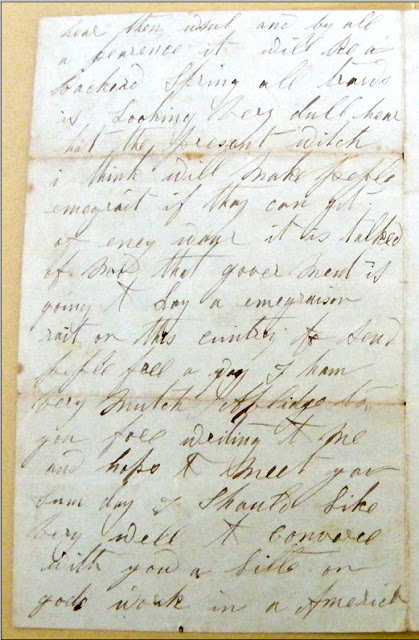 hear then went and by all
a pearence it will be a
backard Spring all traids
is Looking very dull hear
hat the present witch
i think will make peple
emegrait if thay can git
of eney ways it is talked
of now that goverment is
going t Lay a emegraison
rait on this cuntrey to send
peple free a way I ham
very mutch oblidge to
you fore writing t me
and hope t meet you
sum day I should Like
very well t converce
with you a Little on
gods work in a America